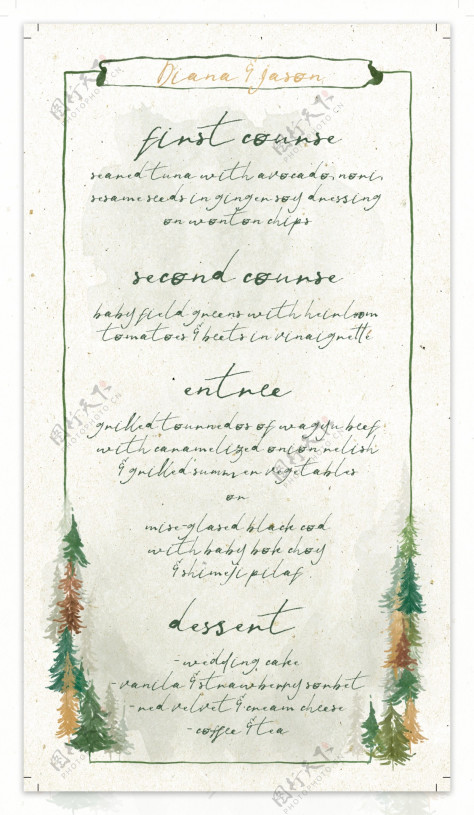 Diana & Jason
first course
seared tuna with avocado, nori,
sesame seeds in ginger soy dressing
on wonton chips
second course
baby field greens with heirloom
tomatoes & beets in vinaigrette
entree
grilled tournedos of wagyu beef
with caramelized onion relish
& grilled summer vegetables
or
miso-glased black cod
with baby bok choy
& shimeji pilaf
dessert
-wedding cake
-vanila & strawberry sorbet
-red velvet & cream cheese
-coffee & tea
图行天下
PHOTOPHOTO.CN